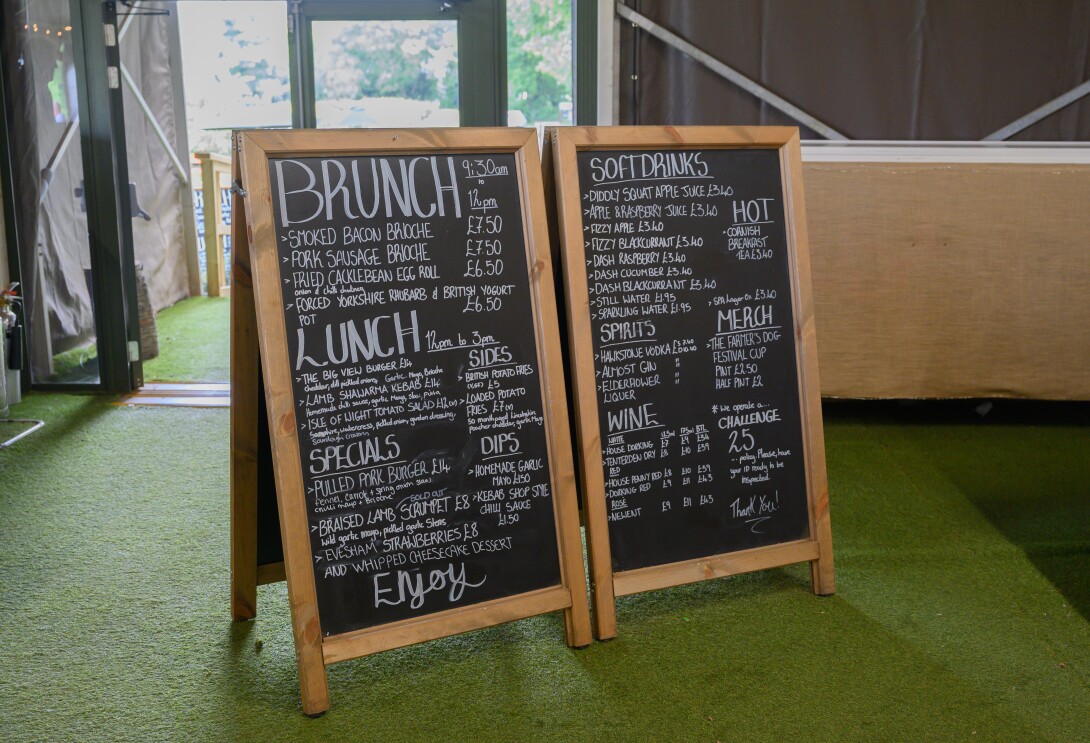 BRUNCH 9:30am
to
12pm
>SMOKED BACON BRIOCHE £7.50
>PORK SAUSAGE BRIOCHE £7.50
>FRIED CACKLEBEAN EGG ROLL £6.50
onion & chilli chutney
>FORCED YORKSHIRE RHUBARB & BRITISH YOGURT
POT £6.50
LUNCH 12pm to 3pm
>THE BIG VIEW BURGER £14
cheddar, dill pickled onions, Garlic Mayo, Brioche
>LAMB SHAWARMA KEBAB £14
Homemade chilli sauce, garlic Mayo, slaw, pitta
>ISLE OF WIGHT TOMATO SALAD £12
Samphire, watercress, pickled onion, garden dressing,
Sourdough croutons
SIDES
>BRITISH POTATO FRIES
£5
>LOADED POTATO
FRIES £7
poacher cheddar, garlic Mayo
SPECIALS
>PULLED PORK BURGER £14
fennel, carrot + spring onion slaw,
chilli mayo + Brioche
SOLD OUT
>BRAISED LAMB SCRUMPET £8
wild garlic mayo, pickled garlic Stems
>EVESHAM STRAWBERRIES £8
AND WHIPPED CHEESECAKE DESSERT
DIPS
>HOMEMADE GARLIC
MAYO £1.50
>KEBAB SHOP STYLE
CHILLI SAUCE
£1.50
ENJOY
SOFT DRINKS
>DIDDLY SQUAT APPLE JUICE £3.40
>APPLE & RASPBERRY JUICE £3.40
>FIZZY APPLE £3.40
>FIZZY BLACKCURRANT £3.40
>DASH RASPBERRY £3.40
>DASH CUCUMBER £3.40
>DASH BLACKCURRANT £3.40
>STILL WATER £1.95
>SPARKLING WATER £1.95
HOT
>CORNISH
BREAKFAST
TEA £3.40
SPIRITS
>HAWKSTONE VODKA
>ALMOST GIN "
>ELDERFLOWER "
LIQUER
£3.40
MERCH
>THE FARMER'S DOG
FESTIVAL CUP
PINT £2.50
HALF PINT £2
WINE
WHITE 125ml 175ml BTL
>HOUSE DORKING £7 £9 £34
>TENTERDEN DRY £8 £10 £39
RED
>HOUSE PENNY RED £8 £10 £39
>DORKING RED £9 £11 £43
ROSÉ
>NEWENT £9 £11 £43
* We operate a...
CHALLENGE
25
...policy. Please, have
your ID ready to be
inspected.
Thank You!